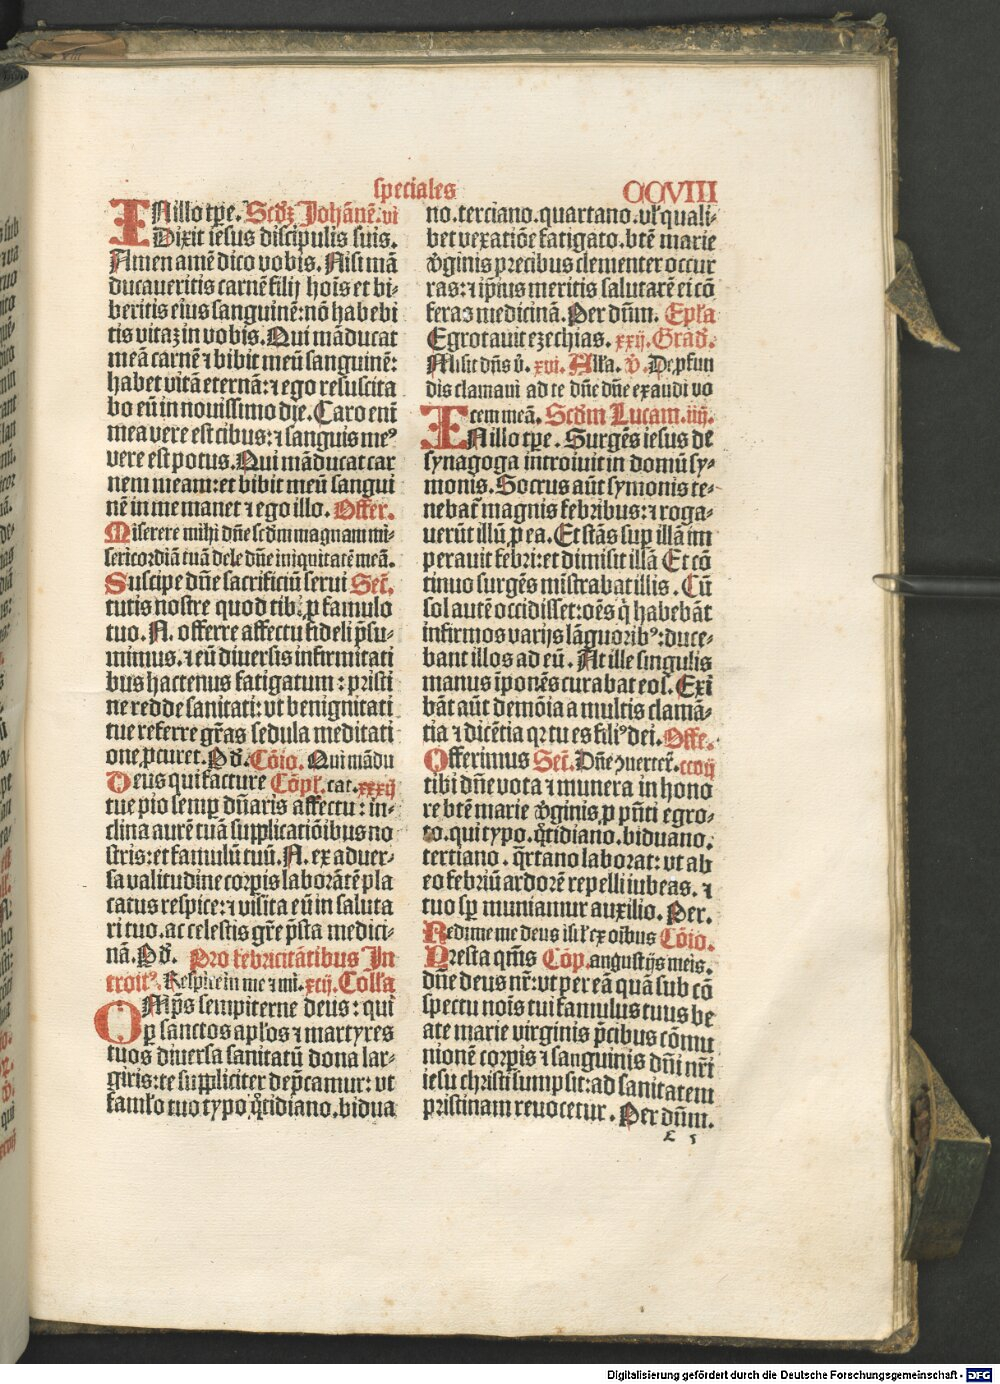 speciales
CCVIII
IN illo tꝑe. Scd̄ꝫ Johānē. vi
Dixit iesus discipulis suis.
Amen amē dico vobis. Nisi mā
ducaveritis carnē filij hoīs et bi-
beritis eius sanguinē: nō habebi
tis vitaꝫ in vobis. Qui māducat
meā carnē ⁊ bibit meū sanguinē:
habet vitā eternā: ⁊ ego resuscita
bo eū in novissimo die. Caro enī
mea vere est cibus: ⁊ sanguis meꝰ
vere est potus. Qui māducat car
nem meam: et bibit meū sangui
nē in me manet ⁊ ego in illo. Offer.
Miserere mihi dn̄e scd̄m magnam mi-
sericordiā tuā dele dn̄e iniquitatē meā.
Suscipe dn̄e sacrificiū servi Sec̄.
tutis nostre quod tibi ꝓ famulo
tuo. N. offerre affectu fideli p̄su-
mimus. ⁊ eū diversis infirmitati
bus hactenus fatigatum: pristi
ne redde sanitati: ut benignitati
tue referre gr̄as sedula meditati
one ꝓcuret. Ꝑ d̄. Cōio. Qui mādu
Deus qui facture Cōpl̄. cat. xxxij
tue pio semꝑ dn̄aris affectu: in-
clina aurē tuā supplicatiōibus no
stris: et famulū tuū. N. ex adver-
sa valitudine corꝑis laborātē pla
catus respice: ⁊ visita eū in saluta
ri tuo. ac celestis gr̄e p̄sta medici-
nā. Ꝑ d̄. Pro febricitātibus In
troitꝰ. Respice in me ⁊ mi. xcij. Coll̄a
OMp̄s sempiterne deus: qui
ꝑ sanctos apl̄os ⁊ martyres
tuos diversa sanitatū dona lar-
giris: te suppliciter dep̄camur: ut
faml̄o tuo typo q̄tidiano, bidua
no. terciano. quartano. vl̄ quali-
bet vexatiōe fatigato. btē marie
v̄ginis precibus clementer occur
ras: ⁊ ip̄ius meritis salutarē ei cō
feras medicinā. Per dn̄m. Epl̄a
Egrotavit ezechias. xxij. Grad̄.
Misit dn̄s v̄. xvi. All̄a. v̄. De ꝓfun
dis clamavi ad te dn̄e dn̄e exaudi vo
cem meā. Scd̄m Lucam. iiij.
IN illo tꝑe. Surgēs iesus de
synagoga introivit in domū sy-
monis. Socrus aūt symonis te-
nebat̄ magnis febribus: ⁊ roga-
verūt illū ꝓ ea. Et stās suꝑ illā im
peravit febri: et dimisit illā Et cō
tinuo surgēs mīstrabat illis. Cū
sol autē occidisset: oēs q̄ habebāt
infirmos varijs lāguoribꝰ: duce-
bant illos ad eū. At ille singulis
manus īponēs curabat eos. Exi
bāt aūt demōia a multis clamā-
tia ⁊ dicētia qr tu es filiꝰ dei. Offe.
Offerimus Sec̄. Dn̄e ꝯvertere. ccvij
tibi dn̄e vota ⁊ munera in hono
re btē marie v̄ginis, ꝓ p̄nti egro-
to. qui typo. q̄tidiano. biduano.
tertiano. q̄rtano laborat: ut ab
eo febriū ardorē repelli iubeas. ⁊
tuo sꝑ muniamur auxilio. Per.
Redime me deus isrl̄ ex oībus Cōio.
Presta qm̄s Cōp. angustijs meis.
dn̄e deus nr̄: ut per eā quā sub cō
spectu noīs tui famulus tuus be
ate marie virginis p̄cibus cōmu
nionē corꝑis ⁊ sanguinis dn̄i nr̄i
iesu christi sumpsit: ad sanitatem
pristinam revocetur. Per dn̄m.
Digitalisierung gefördert durch die Deutsche Forschungsgemeinschaft - DFG